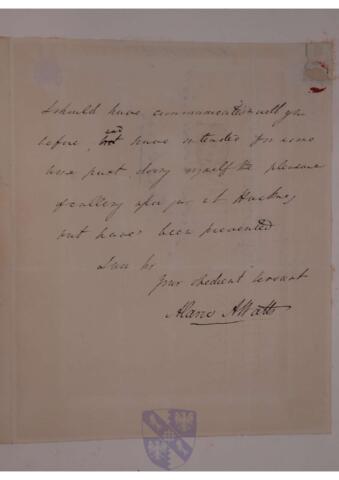 I should have communicated with you
before, and have intended for some
time past, doing myself the pleasure
of calling upon you at Hackney
but have been prevented
I am Sir
your obedient Servant
Alaric A Watts